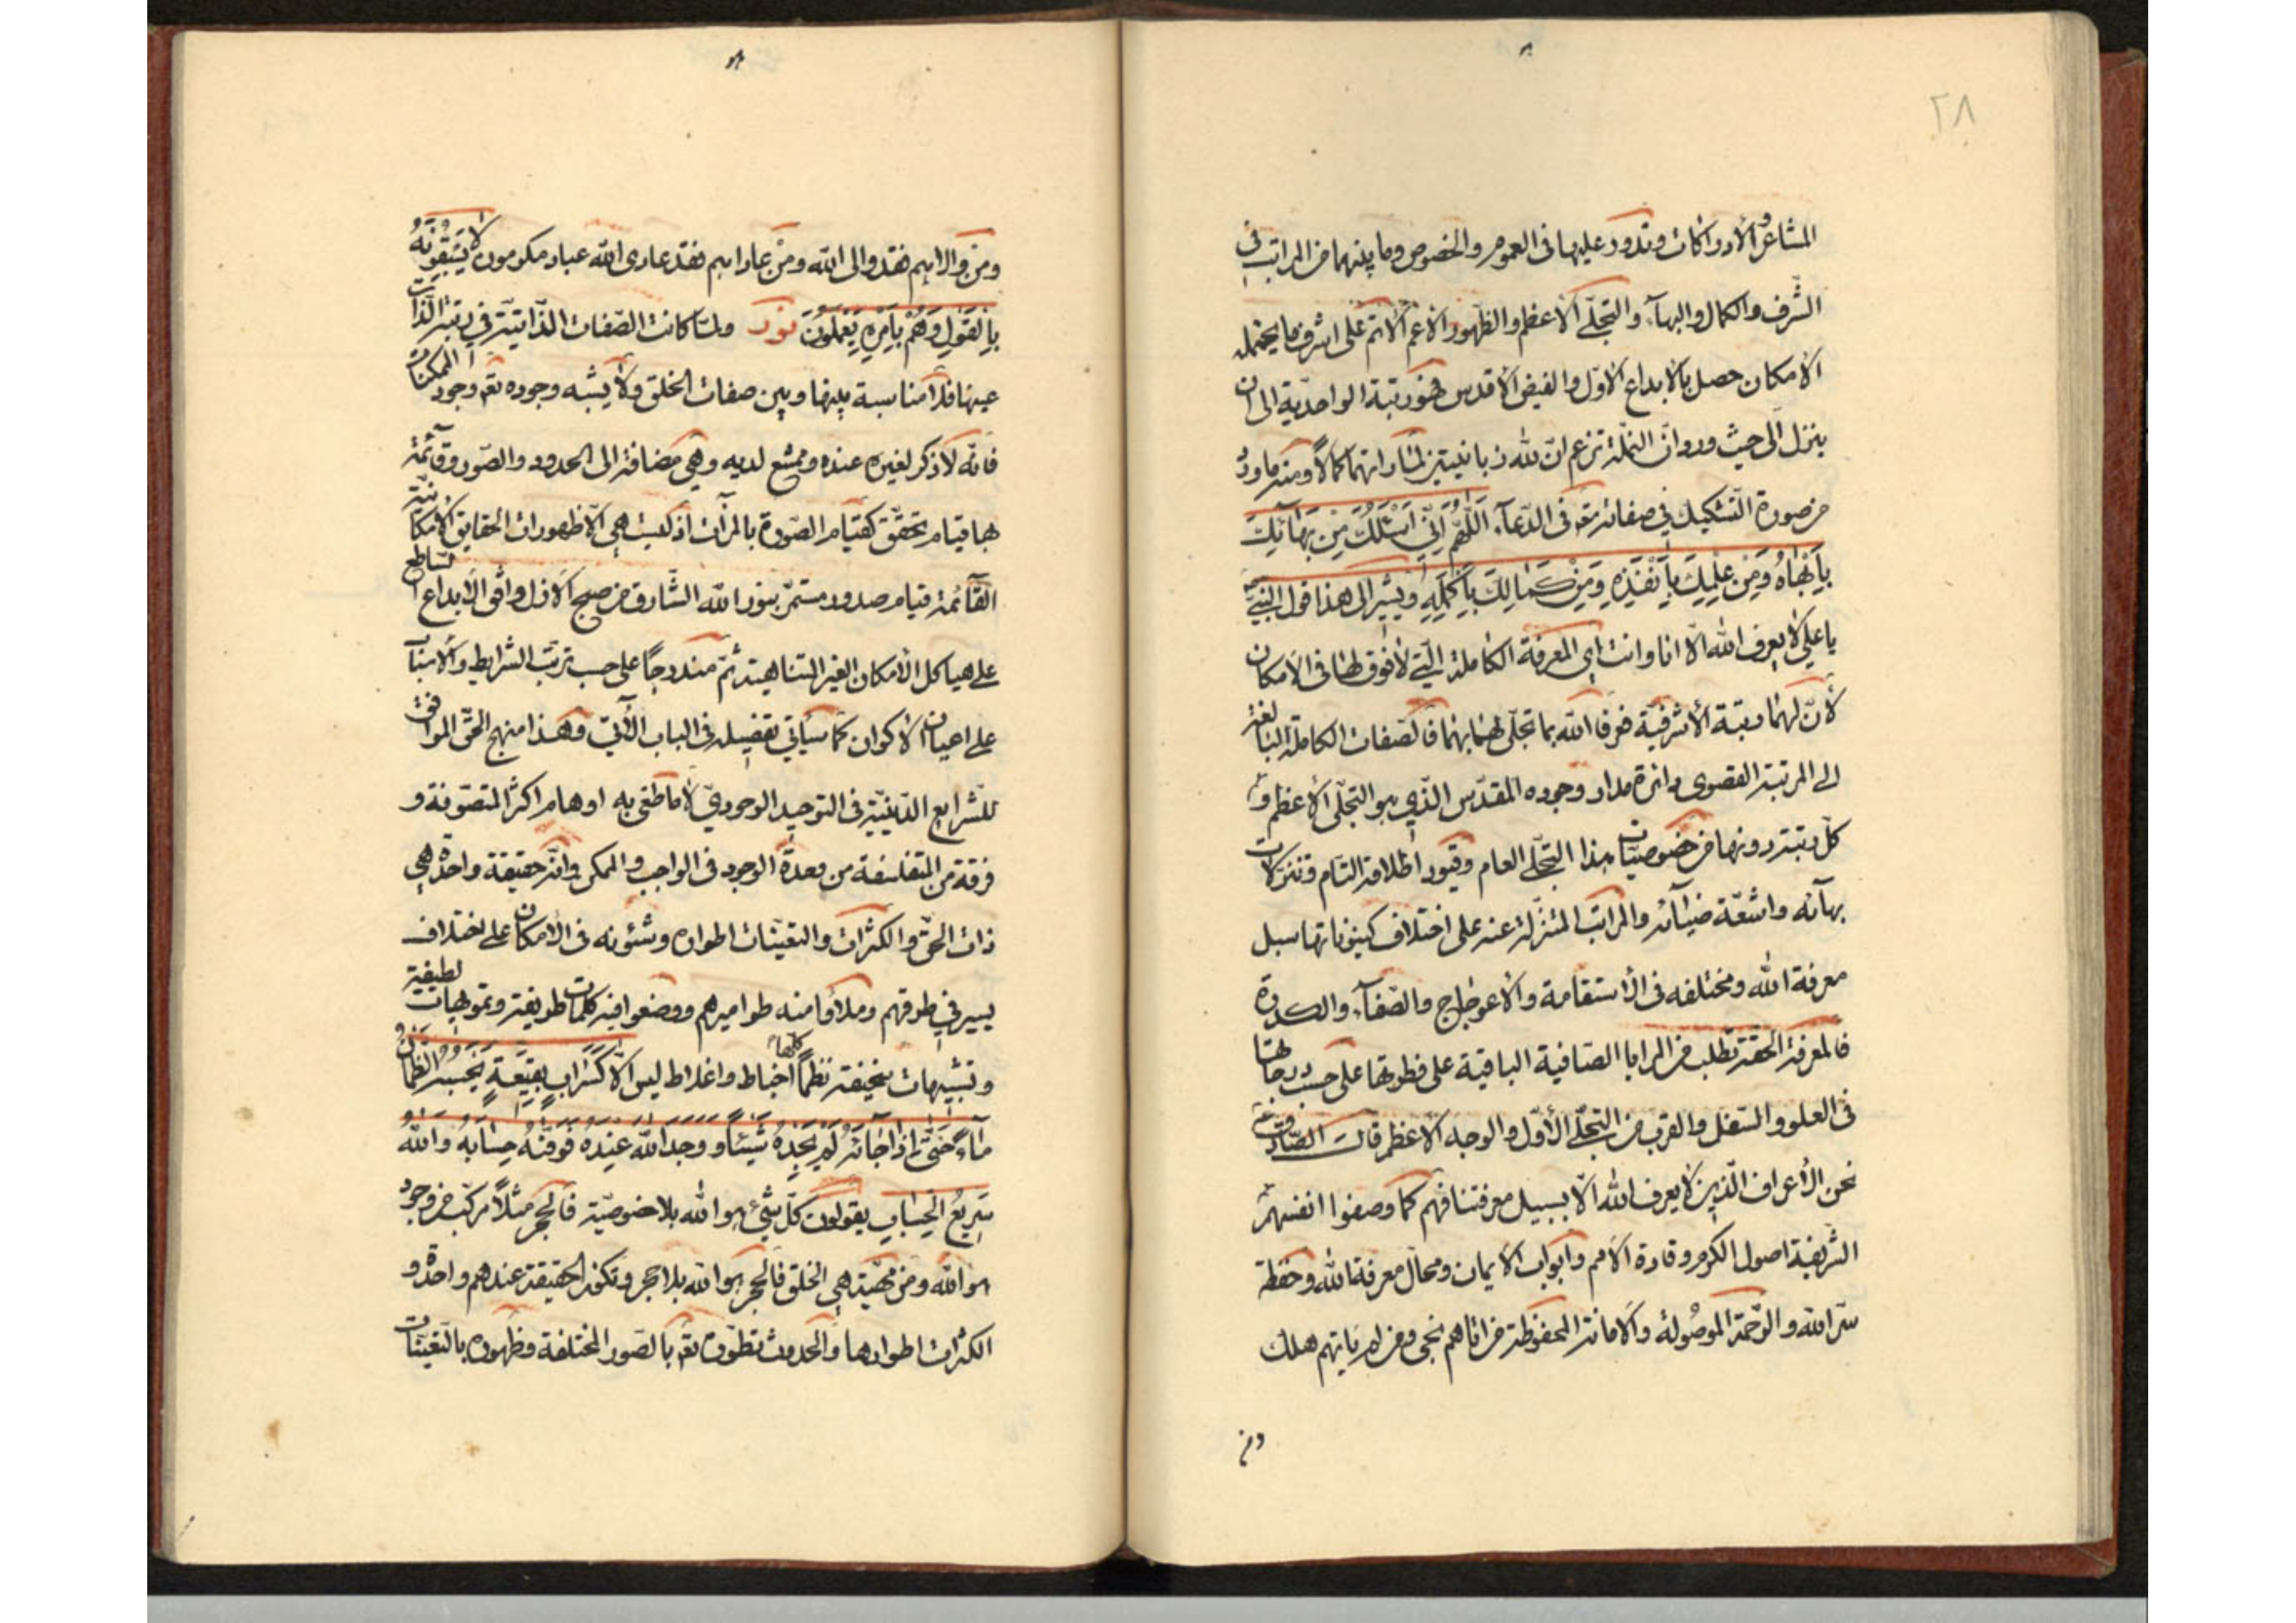 ٢٨
المشاعر والادراكات وتدور عليها فى العموم والخصوص وما بينهما من المراتب فى
الشرف والكمال والبهآء والتجلّى الاعظم والظهور الاعم الاتم على اشرف ما يحتمله
الامكان حصل بالابداع الاوّل والفيض الاقدس فى رتبة الواحديّة الى ان
ينزل الى حيث ورد وانّ النملة تزعم انّ لله زبانيتين لما راتهما كمالاً ومنه ما ورد
من صورة التشكيك في صفاته تعه فى الدّعآء اَللّهُمَّ اِنّي اَسْئَلُكَ مِنْ بَهائِكَ
بِاَبْهاهُ وَمِنْ عِلْمِكَ بِاَنْفَذِهِ وَمِنْ كَمالِكَ بِاَكْمَلِهِ ويشير الى هذا قول النبيّ
يا على لا يعرف الله الّا انا وانت اي المعرفة الكاملة الّتي لا فوق لها فى الامكان
لأنّ لهما رتبة الأشرفيّة فعرفا الله بما تجلّى لهما بهما فالصفات الكاملة البالغة
الى المرتبة القصوى دائرة مدار وجوده المقدّس الذّي هو التجلّى الأعظم و
كلّ رتبة دونها من خصوصيّات هذا التجلّى العام وقيود اطلاقه التام وتنزلات
بهآئه واشعّة ضيائه والمراتب المتنزلة عنه على اختلاف كينوناتها سبل
معرفة الله ومختلفه فى الاستقامة والأعوجاج والصّفآء والكدرة
فالمعرفة الحقة تطلب من المرايا الصافية الباقية على فطرتها على حسب درجاتها
فى العلو والسّفل والقرب من التجلّى الأوّل والوجه الاعظم قال الصّادق
نحن الأعراف الّذين لا يعرف الله الّا بسبيل معرفتنا فهم كما وصفوا انفسهم
الشّريفة اصول الكرم وقادة الامم وابواب الايمان ومحالّ معرفة الله وحفظة
سرّ الله والرّحمة الموصولة والامانة المحفوظة من اتاهم نجى ومن لم ياتهم هلك
ومن
ومن والاهم فقد والى الله ومن عاداهم فقد عادى الله عباد مكرمون لا يَسْبِقُونَهُ
بِالْقَوْلِ وَهُمْ بِاَمْرِهِ يَعْمَلُونَ نور ولمّا كانت الصّفات الذّاتيّة في رتبة الذّات
عينها فلا مناسبة بينها وبين صفات الخلق ولا يشبه وجوده تعه وجود الممكنات
فانّه لا ذكر لغيره عنده وممتنع لديه وهي مضافة الى الحدود والصّور وقآئمة
بها قيام تحقّق كقيام الصّورة بالمرآت اذ ليست هي الّا ظهورات الحقايق الأمكانيّة
القآئمة قيام صدور مستمرّ بنور الله الشّارق من صبح الازل وافق الابداع الساطع
على هياكل الأمكان الغير المتناهية ثمّ مندرجاً على حسب ترتب الشرايط والاسباب
على اعيان الأكوان كما سيأتي تفصيله فى الباب الآتي وهذا منهج الحقّ الموافق
للشّرايع الدّينيّة فى التوحيد الوجوديّ لا ما طغى به اوهام اكثر المتصوّفة و
فرقة من المتفلسفة من وحدة الوجود فى الواجب والممكن وانّه حقيقة واحدة هي
ذات الحقّ والكثرات والتعيّنات اطواره وشئونه فى الأمكان على اختلاف
يسير في طرقهم وملأوا منه طواميرهم ووضعوا فيه كلمات طريفة وتمويهات لطيفة
وتشبيهات سخيفة نظماً كلّها اخباط واغلاط ليس الّا كَسَرابٍ بِقيعَةٍ يَحْسَبُهُ الظَّمْآنُ
مآءً حَتّى اِذا جائَهُ لَمْ يَجِدْهُ شَيْئاً وَوَجَدَ اللهَ عِنْدَهُ فَوَفّيهُ حِسابَهُ وَاللهُ
سَريعُ الْحِسابِ يقولون كلّ شيء هو الله بلا خصوصيّة فالحجر مثلاً مركب من وجود
هو الله ومن مهيّة هي الخلق فالحجر هو الله بلا حجر وتكون الحقيقة عندهم واحدة و
الكثرات اطوارها والحدوث تطوّره تعه بالصّور المختلفة وظهوره بالتّعيّنات